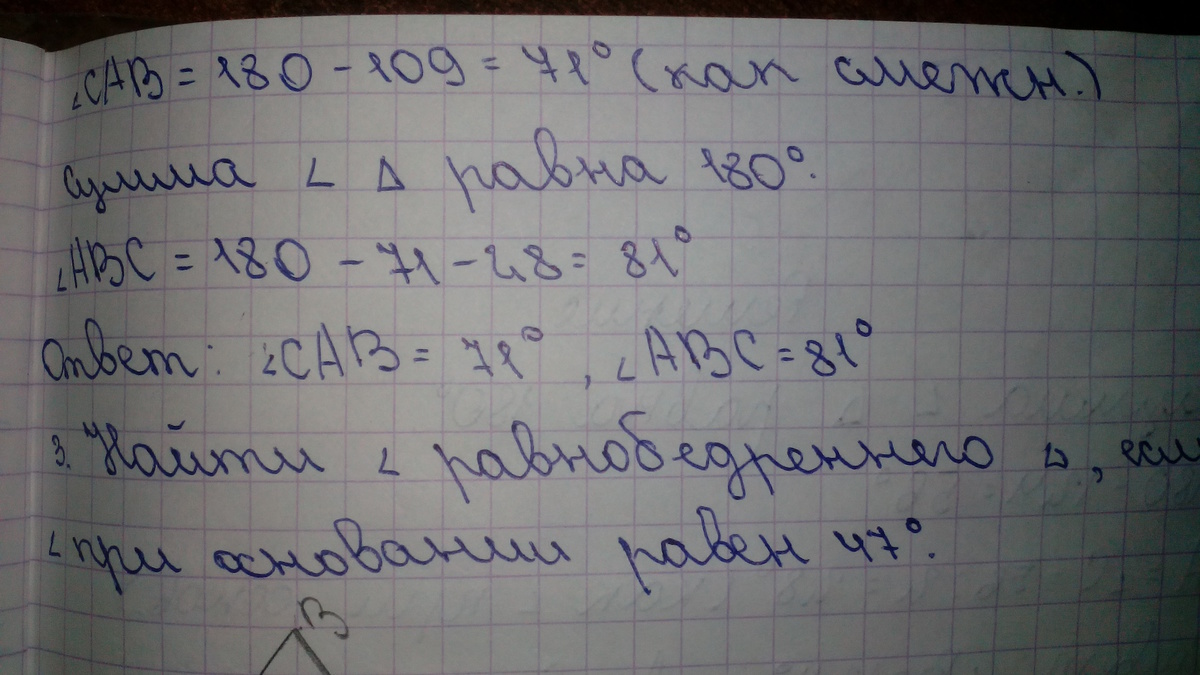 ∠CAB = 180 - 109 = 71° (как смежн.)
сумма ∠ Δ равна 180°.
∠ABC = 180 - 71 - 28 = 81°
Ответ: ∠CAB = 71°, ∠ABC = 81°
3. Найти ∠ равнобедренного Δ, если
∠ при основании равен 47°.
B